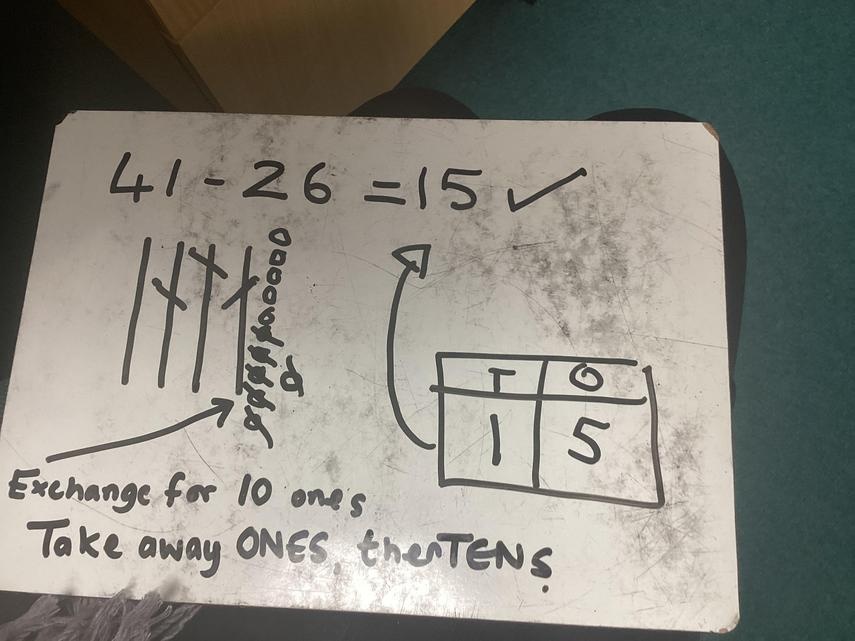 41 - 26 = 15 ✓
T O
1 5
Exchange for 10 ones
Take away ONES, then TENS.